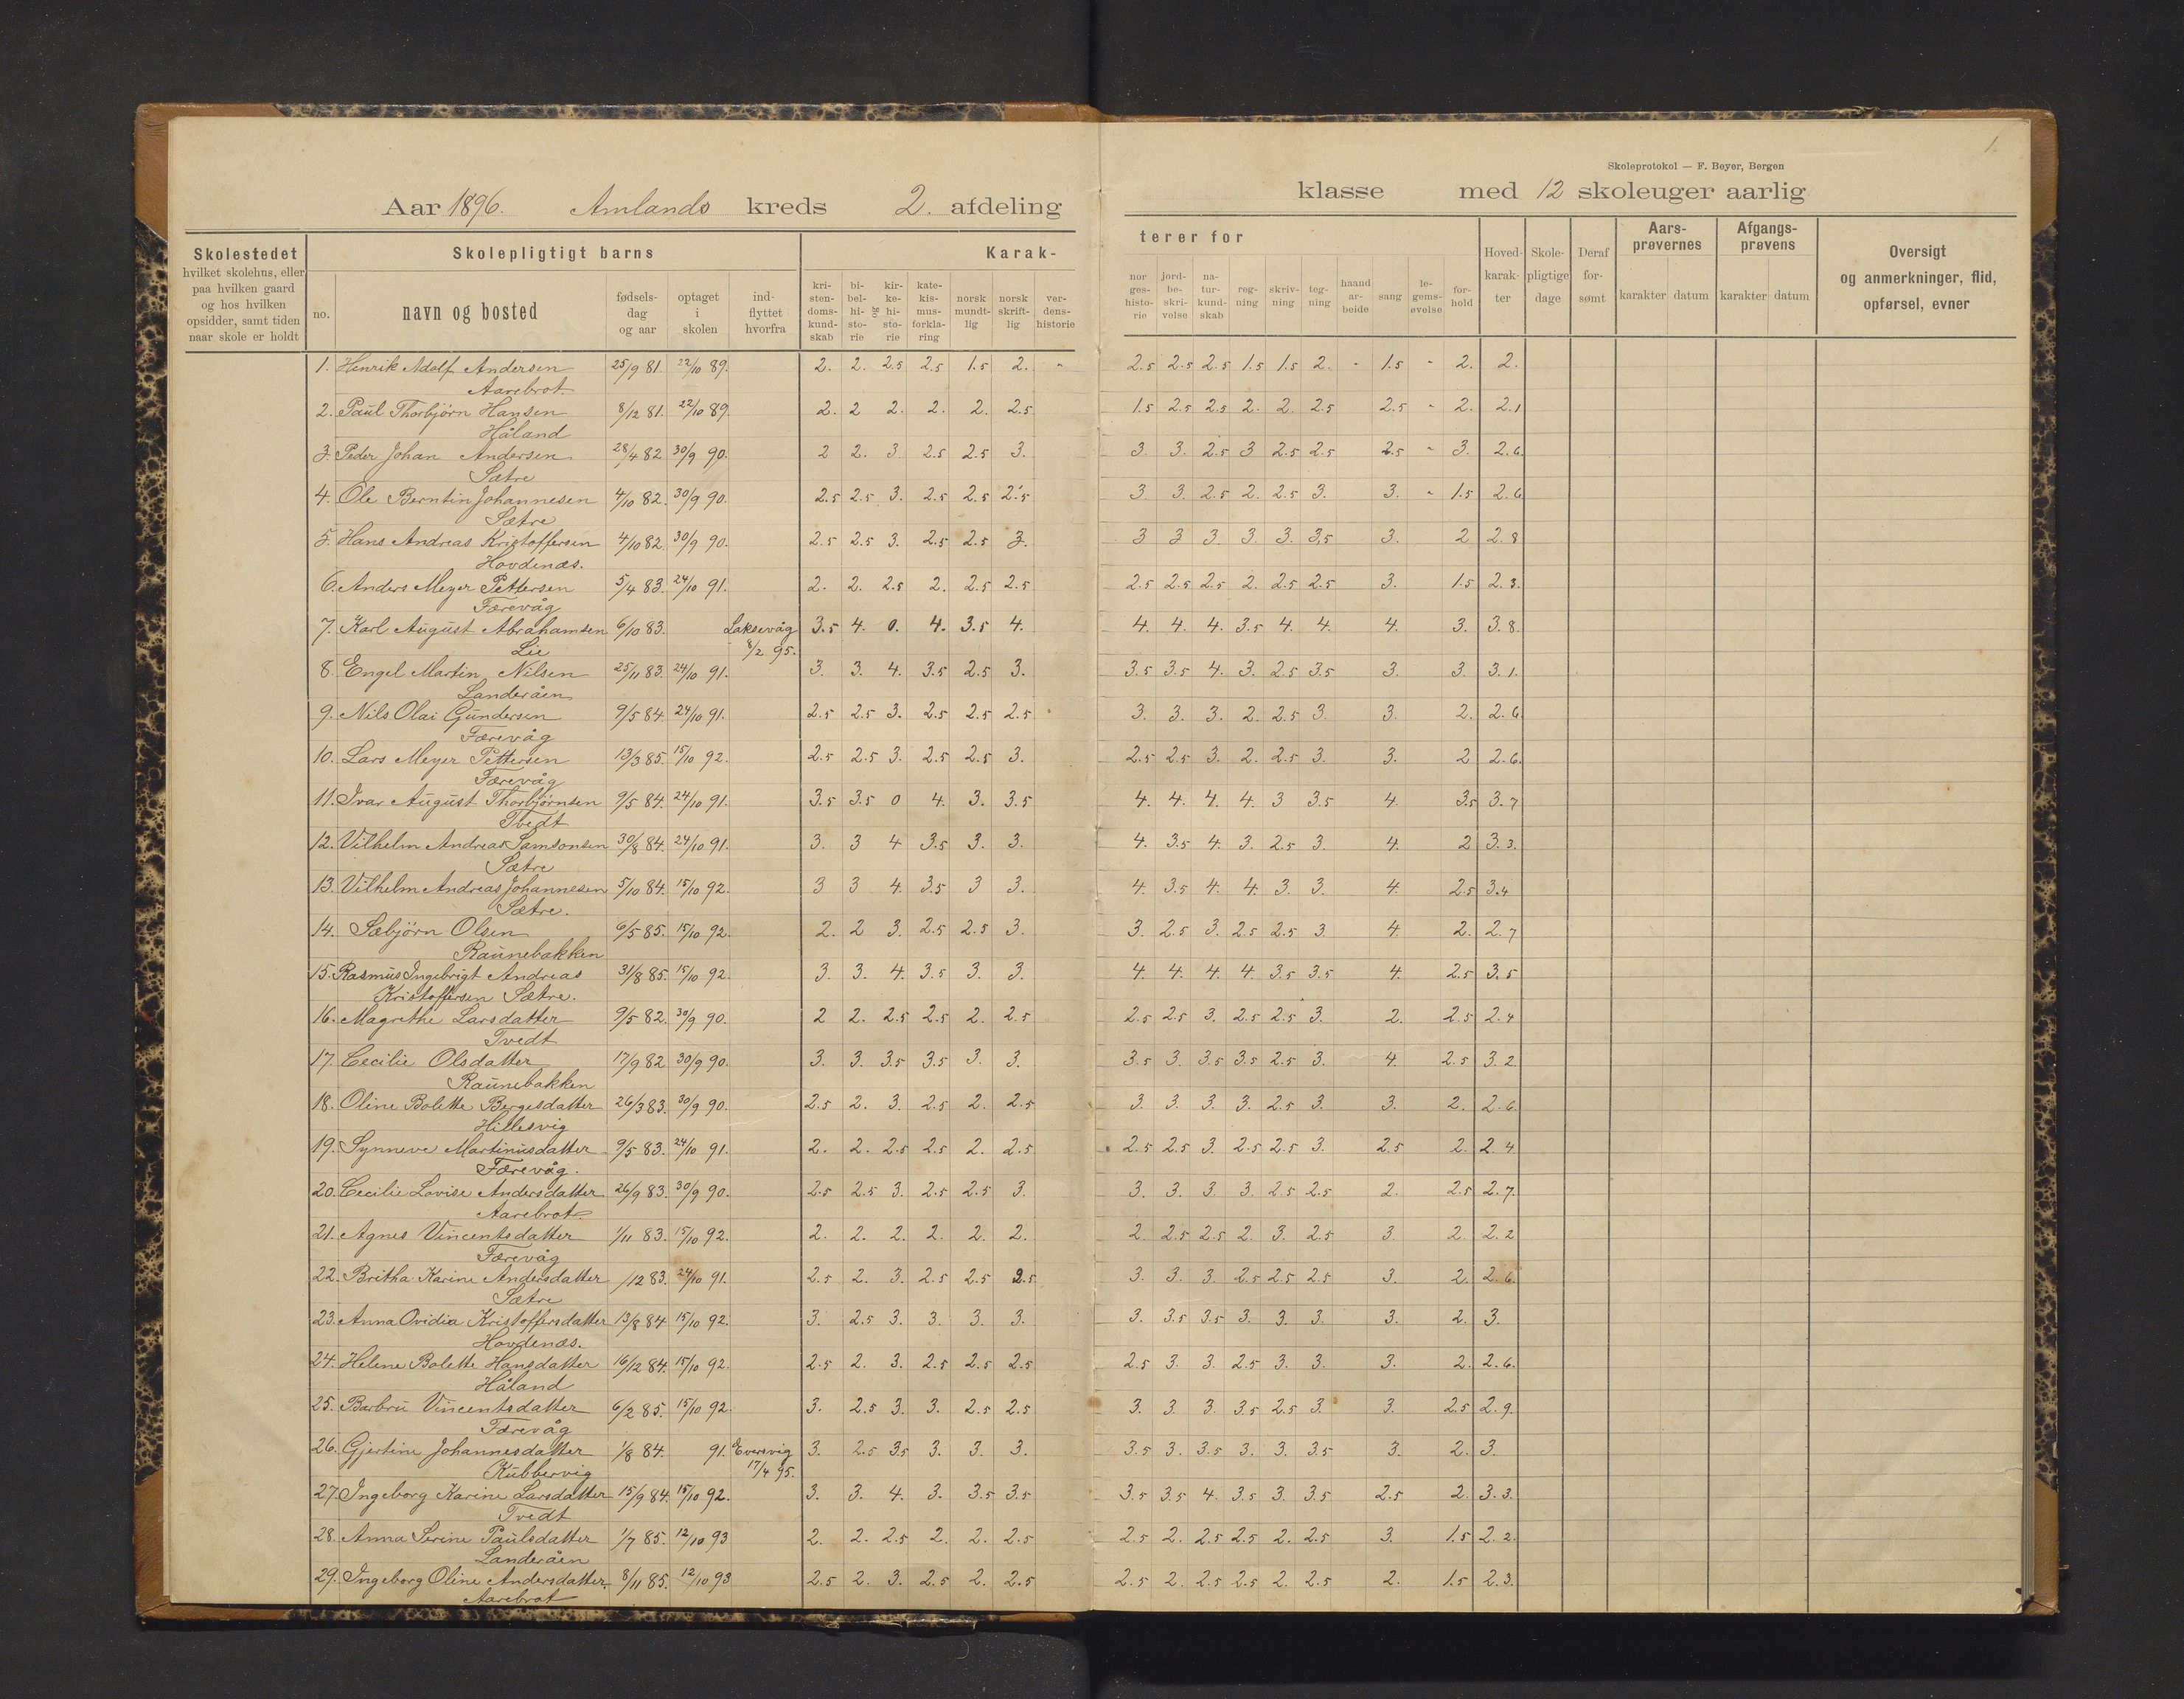 1.
Skoleprotokol — F. Beyer, Bergen
Aar 1896. Amlands kreds 2. afdeling klasse med 12 skoleuger aarlig
Skolestedet
hvilket skolehus, eller
paa hvilken gaard
og hos hvilken
opsidder, samt tiden
naar skole er holdt
Skolepligtigt barns
no.
navn og bosted
fødsels-
dag
og aar
optaget
i
skolen
ind-
flyttet
hvorfra
Karak-
kri-
sten-
doms-
kund-
skab
bi-
bel-
hi-
sto-
rie
og
kir-
ke-
hi-
sto-
rie
kate-
kis-
mus-
forkla-
ring
norsk
mundt-
lig
norsk
skrift-
lig
ver-
dens-
historie
terer for
nor
ges-
histo-
rie
jord-
be-
skri-
velse
na-
tur-
kund-
skab
reg-
ning
skriv-
ning
teg-
ning
haand
ar-
beide
sang
le-
gems-
øvelse
for-
hold
Hoved-
karak-
ter
Skole-
pligtige
dage
Deraf
for-
sømt
Aars-
prøvernes
karakter datum
Afgangs-
prøvens
karakter datum
Oversigt
og anmerkninger, flid,
opførsel, evner
1. Henrik Adolf Andersen 25/9 81. 22/10 89. 2. 2. 2.5 2.5 1.5 2. - 2.5 2.5 2.5 1.5 1.5 2. - 1.5 - 2. 2.
Aarebrot.
2. Paul Thorbjörn Hansen 8/12 81. 22/10 89. 2. 2 2. 2. 2. 2.5 1.5 2.5 2.5 2. 2. 2.5 2.5 - 2. 2.1
Håland
3. Peder Johan Andersen 28/4 82 30/9 90. 2 2. 3. 2.5 2.5 3. 3. 3. 2.5 3 2.5 2.5 2.5 - 3. 2.6
Sætre
4. Ole Berntin Johannesen 4/10 82. 30/9 90. 2.5 2.5 3. 2.5 2.5 2.5 3 3. 2.5 2. 2.5 3. 3. - 1.5 2.6
Sætre
5. Hans Andreas Kristoffersen 4/10 82. 30/9 90. 2.5 2.5 3. 2.5 2.5 3. 3 3 3. 3 3. 3.5 3. 2 2.8
Hovdenæs.
6. Anders Meyer Pettersen 5/4 83. 24/10 91. 2. 2. 2.5 2. 2.5 2.5 2.5 2.5 2.5 2. 2.5 2.5 3. 1.5 2.3.
Færevåg
7. Karl August Abrahamsen 6/10 83. Laksevåg 3.5 4. 0. 4. 3.5 4. 4. 4. 4. 3.5 4. 4. 4. 3. 3.8.
Lie 8/2 95.
8. Engel Martin Nilsen 25/11 83. 24/10 91. 3. 3. 4. 3.5 2.5 3. 3.5 3.5 4. 3. 2.5 3.5 3. 3. 3.1.
Landeråen
9. Nils Olai Gundersen 9/5 84. 24/10 91. 2.5 2.5 3. 2.5 2.5 2.5 3. 3. 3. 2. 2.5 3. 3. 2. 2.6
Færevåg
10. Lars Meyer Pettersen 13/3 85. 15/10 92. 2.5 2.5 3. 2.5 2.5 3. 2.5 2.5 3. 2. 2.5 3. 3. 2 2.6.
Færevåg
11. Ivar August Thorbjørnsen 9/5 84. 24/10 91. 3.5 3.5 0 4. 3. 3.5 4. 4. 4. 4. 3 3.5 4. 3.5 3.7
Tvedt
12. Vilhelm Andreas Samsonsen 30/8 84. 24/10 91. 3. 3 4 3.5 3. 3. 4. 3.5 4. 3. 2.5 3. 4. 2 3.3.
Sætre
13. Vilhelm Andreas Johannesen 5/10 84. 15/10 92. 3 3 4. 3.5 3 3. 4. 3.5 4. 4. 3. 3. 4. 2.5 3.4
Sætre.
14. Sæbjörn Olsen 6/5 85. 15/10 92. 2. 2 3. 2.5 2.5 3. 3. 2.5 3. 2.5 2.5 3. 4. 2. 2.7
Raunebakken
15. Rasmus Ingebrigt Andreas 31/8 85. 15/10 92. 3. 3. 4. 3.5 3. 3. 4. 4. 4. 4. 3.5 3.5 4. 2.5 3.5
Kristoffersen Sætre.
16. Magrethe Larsdatter 9/5 82. 30/9 90. 2 2. 2.5 2.5 2. 2.5 2.5 2.5 3. 2.5 2.5 3. 2. 2.5 2.4
Tvedt
17. Cecilie Olsdatter 17/9 82 30/9 90. 3. 3. 3.5 3.5 3. 3. 3.5 3. 3.5 3.5 2.5 3. 4. 2.5 3.2
Raunebakken
18. Oline Bolette Børgesdatter 26/3 83. 30/9 90. 2.5 2. 3. 2.5 2. 2.5 3. 3. 3. 3. 2.5 3. 3. 2. 2.6.
Hillesvig
19. Synneve Martinusdatter 9/5 83. 24/10 91. 2. 2. 2.5 2.5 2. 2.5 2.5 2.5 3 2.5 2.5 3. 2.5 2. 2.4.
Færevåg.
20. Cecilie Lovise Andersdatter 26/9 83. 30/9 90. 2.5 2.5 3. 2.5 2.5 3. 3. 3. 3. 3. 2.5 2.5 2. 2.5 2.7.
Aarebrot.
21. Agnes Vincentsdatter 1/11 83. 15/10 92. 2. 2. 2. 2. 2. 2. 2. 2.5 2.5 2. 3. 2.5 3. 2. 2.2
Færevåg
22. Britha Karine Andersdatter /12 83. 24/10 91. 2.5 2. 3. 2.5 2.5 2.5 3. 3. 3. 2.5 2.5 2.5 3. 2. 2.6.
Sætre
23. Anna Ovidia Kristoffersdatter 13/8 84 15/10 92. 3. 2.5 3. 3. 3. 3. 3. 3.5 3.5 3. 3. 3. 3. 2. 3.
Hovdenæs.
24. Helene Bolette Hansdatter 16/12 84. 15/10 92. 2.5 2. 3. 2.5 2.5 2.5 2.5 3. 3. 2.5 3. 3. 3. 2. 2.6.
Håland
25. Barbru Vincentsdatter 6/2 85. 15/10 92. 3. 2.5 3. 3. 2.5 2.5 3. 3. 3. 3.5 2.5 3. 3. 2.5 2.9.
Færevåg
26. Gjertine Johannesdatter 1/8 84. 91. Eversvig 3. 2.5 3.5 3. 3. 3. 3.5 3. 3.5 3. 3. 3.5 3. 2. 3.
Kubbervig 17/4 95.
27. Ingeborg Karine Larsdatter 15/9 84. 15/10 92. 3. 3. 4. 3. 3.5 3.5 3.5 3.5 4. 3.5 3. 3.5 2.5 2. 3.3.
Tvedt
28. Anna Serine Paulsdatter 1/7 85. 12/10 93 2. 2. 2.5 2. 2. 2.5 2.5 2. 2.5 2.5 2. 2.5 3. 1.5 2.2.
Landeråen
29. Ingeborg Oline Andersdatter. 8/11 85. 12/10 93 2.5 2. 3. 2.5 2. 2.5 2.5 2. 2.5 2.5 2. 2.5 2. 1.5 2.3.
Aarebrot